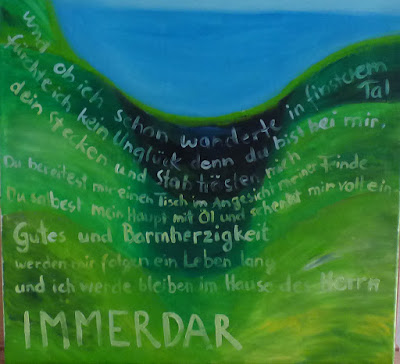 und ob ich schon wanderte in finsterem Tal
fürchte ich kein Unglück denn du bist bei mir,
dein Stecken und Stab trösten mich
Du bereitest mir einen Tisch im Angesicht meiner Feinde
Du salbest mein Haupt mit Öl und schenkst mir voll ein
Gutes und Barmherzigkeit
werden mir folgen ein Leben lang
und ich werde bleiben im Hause des Herrn
IMMERDAR